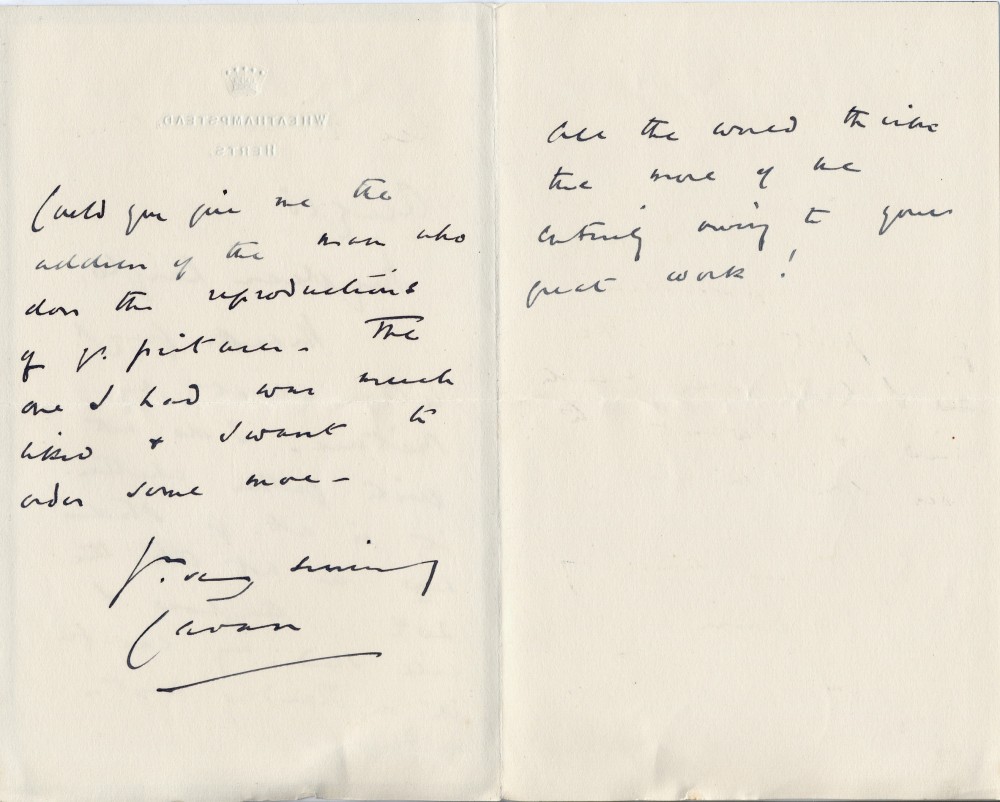 WHEATHAMPSTEAD,
HERTS.
Could you give me the
address of the man who
does the reproductions
of yr. pictures - The
one I had was much
liked & I want to
order some more -
Yr. very sincerely
Cavan
All the world thinks
the more of me
entirely owing to your
great work!